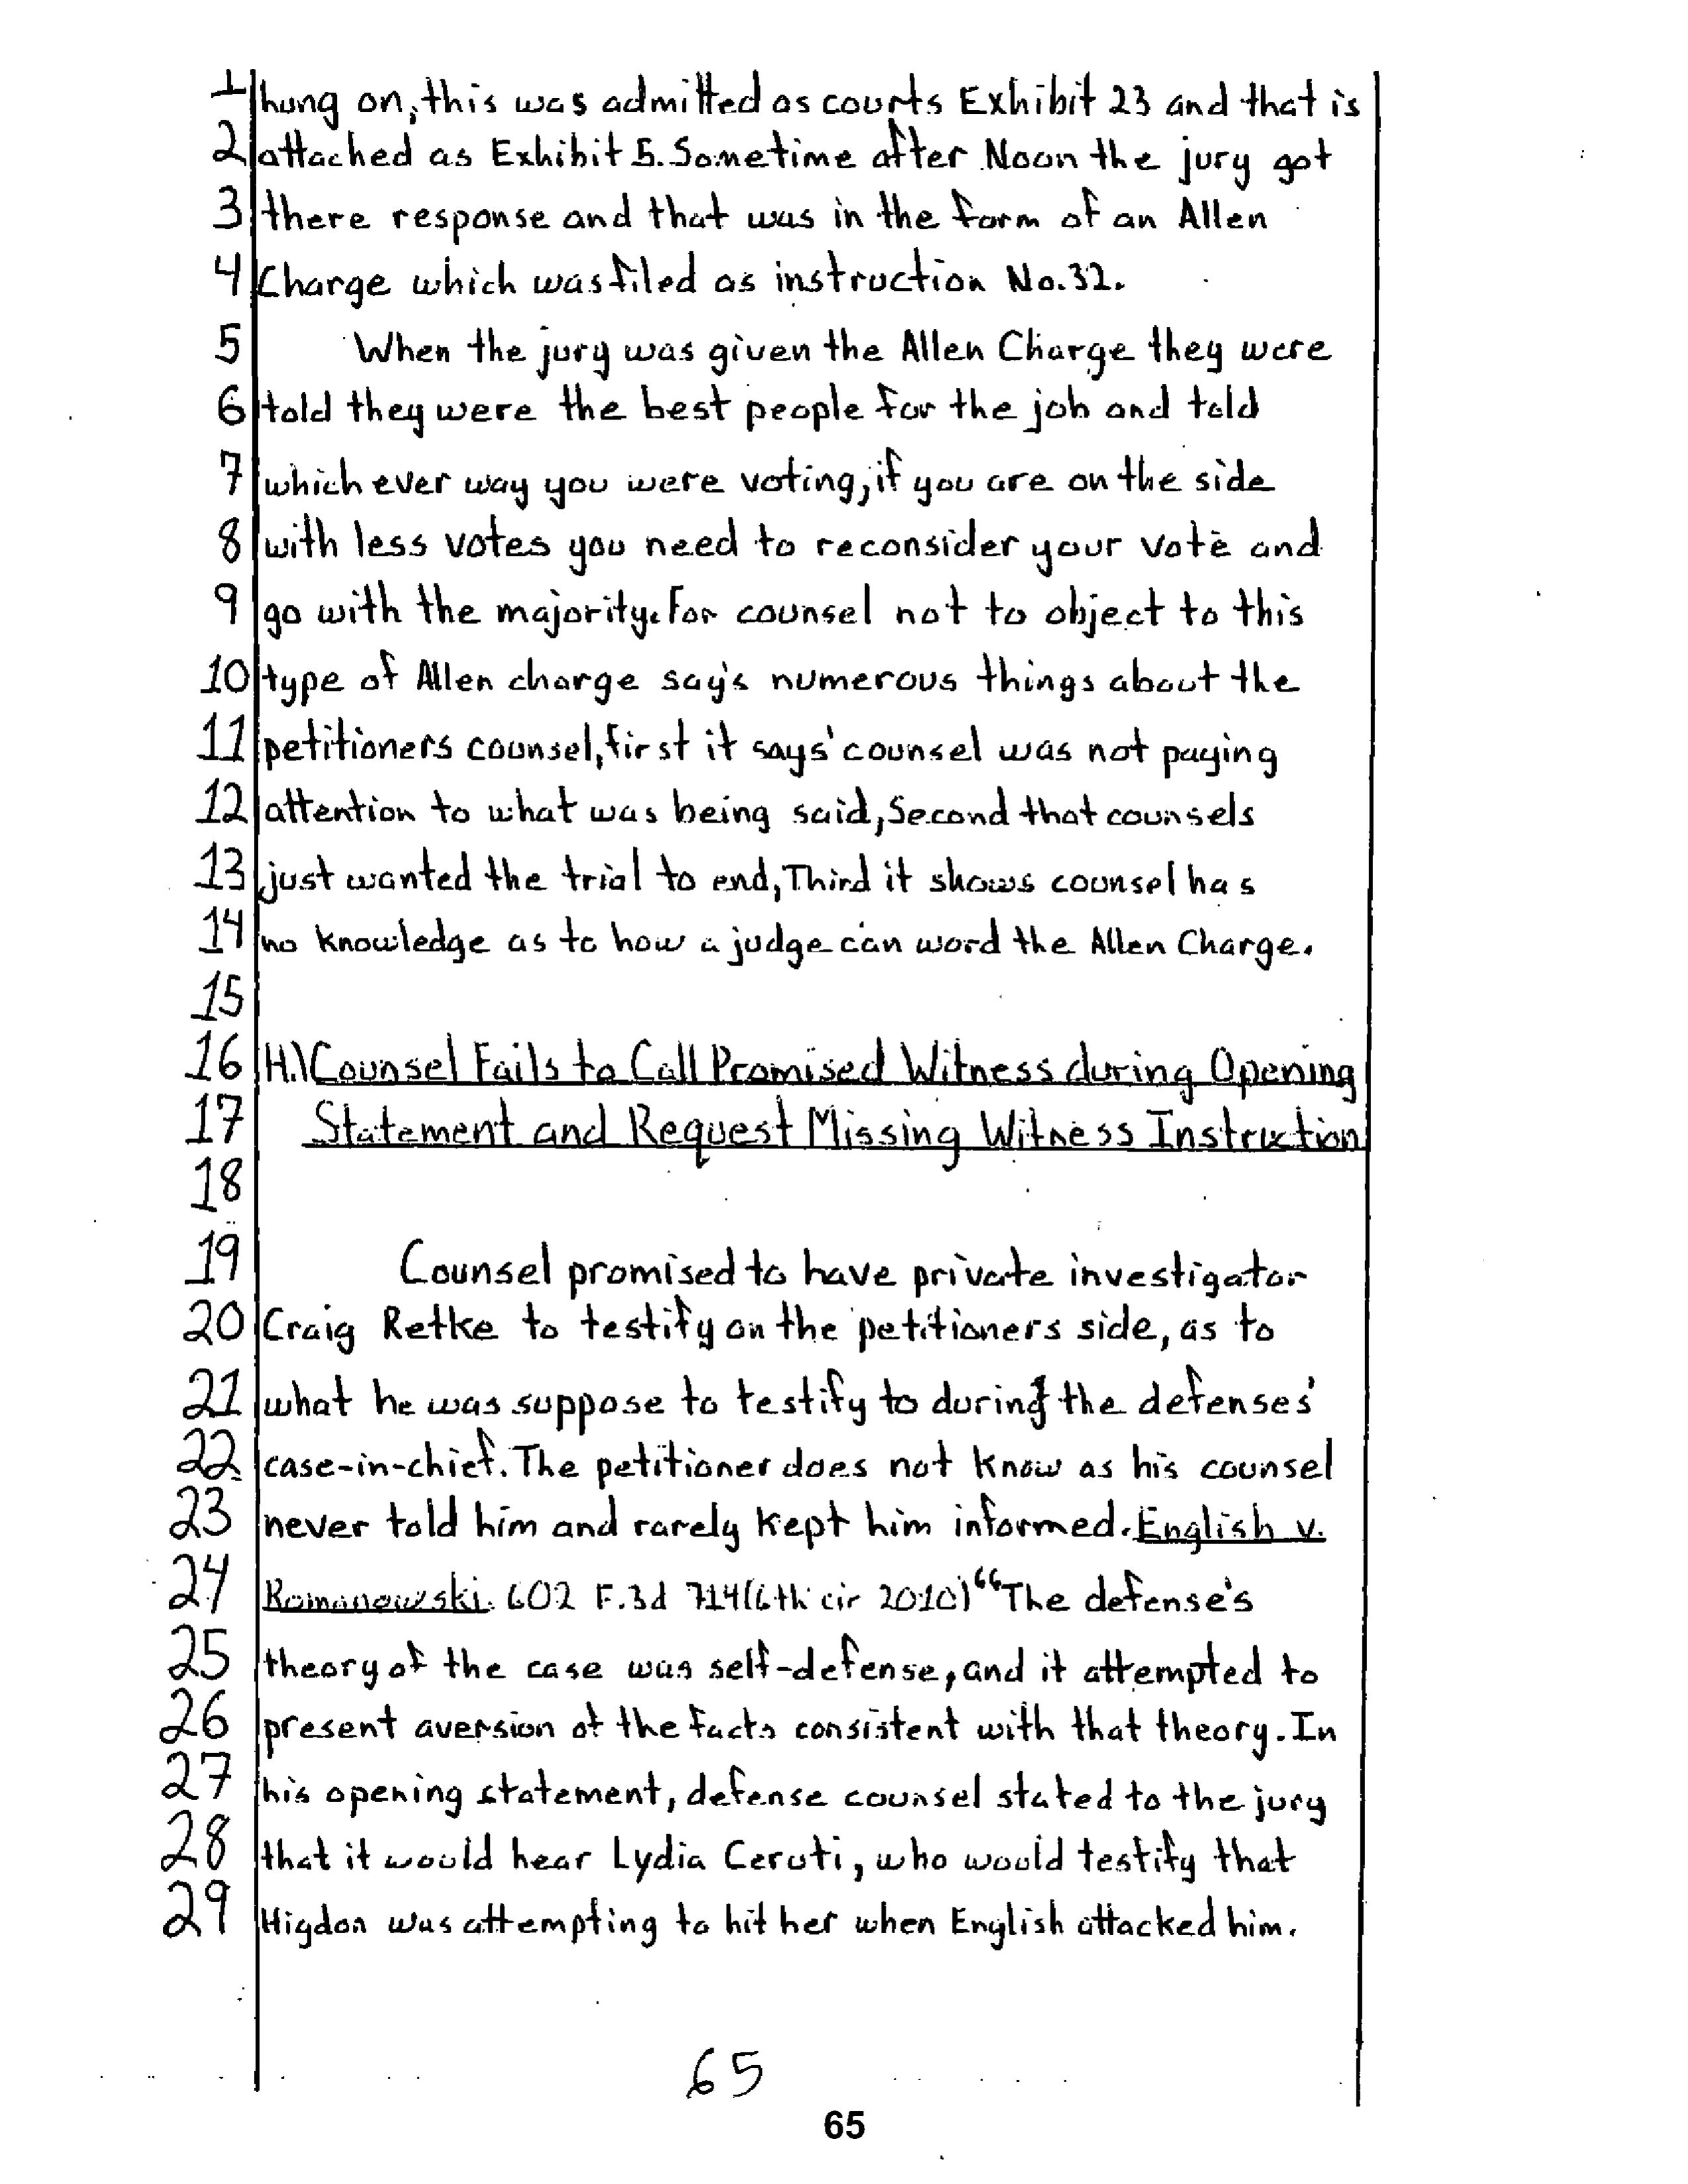 1 hung on, this was admitted as courts Exhibit 23 and that is
2 attached as Exhibit 5. Sometime after Noon the jury got
3 there response and that was in the form of an Allen
4 Charge which was filed as instruction No. 32.
5 When the jury was given the Allen Charge they were
6 told they were the best people for the job and told
7 which ever way you were voting, if you are on the side
8 with less votes you need to reconsider your vote and
9 go with the majority. For counsel not to object to this
10 type of Allen charge say's numerous things about the
11 petitioners counsel, first it says' counsel was not paying
12 attention to what was being said, Second that counsels
13 just wanted the trial to end, Third it shows counsel has
14 no knowledge as to how a judge can word the Allen Charge.
15
16 H.) Counsel Fails to Call Promised Witness during Opening
17 Statement and Request Missing Witness Instruction
18
19 Counsel promised to have private investigator
20 Craig Retke to testify on the petitioners side, as to
21 what he was suppose to testify to during the defenses'
22 case-in-chief. The petitioner does not know as his counsel
23 never told him and rarely kept him informed. English v.
24 Romanowski 602 F.3d 714 (6th cir 2010) "The defense's
25 theory of the case was self-defense, and it attempted to
26 present aversion of the facts consistent with that theory. In
27 his opening statement, defense counsel stated to the jury
28 that it would hear Lydia Ceruti, who would testify that
29 Higdon was attempting to hit her when English attacked him.
65
65